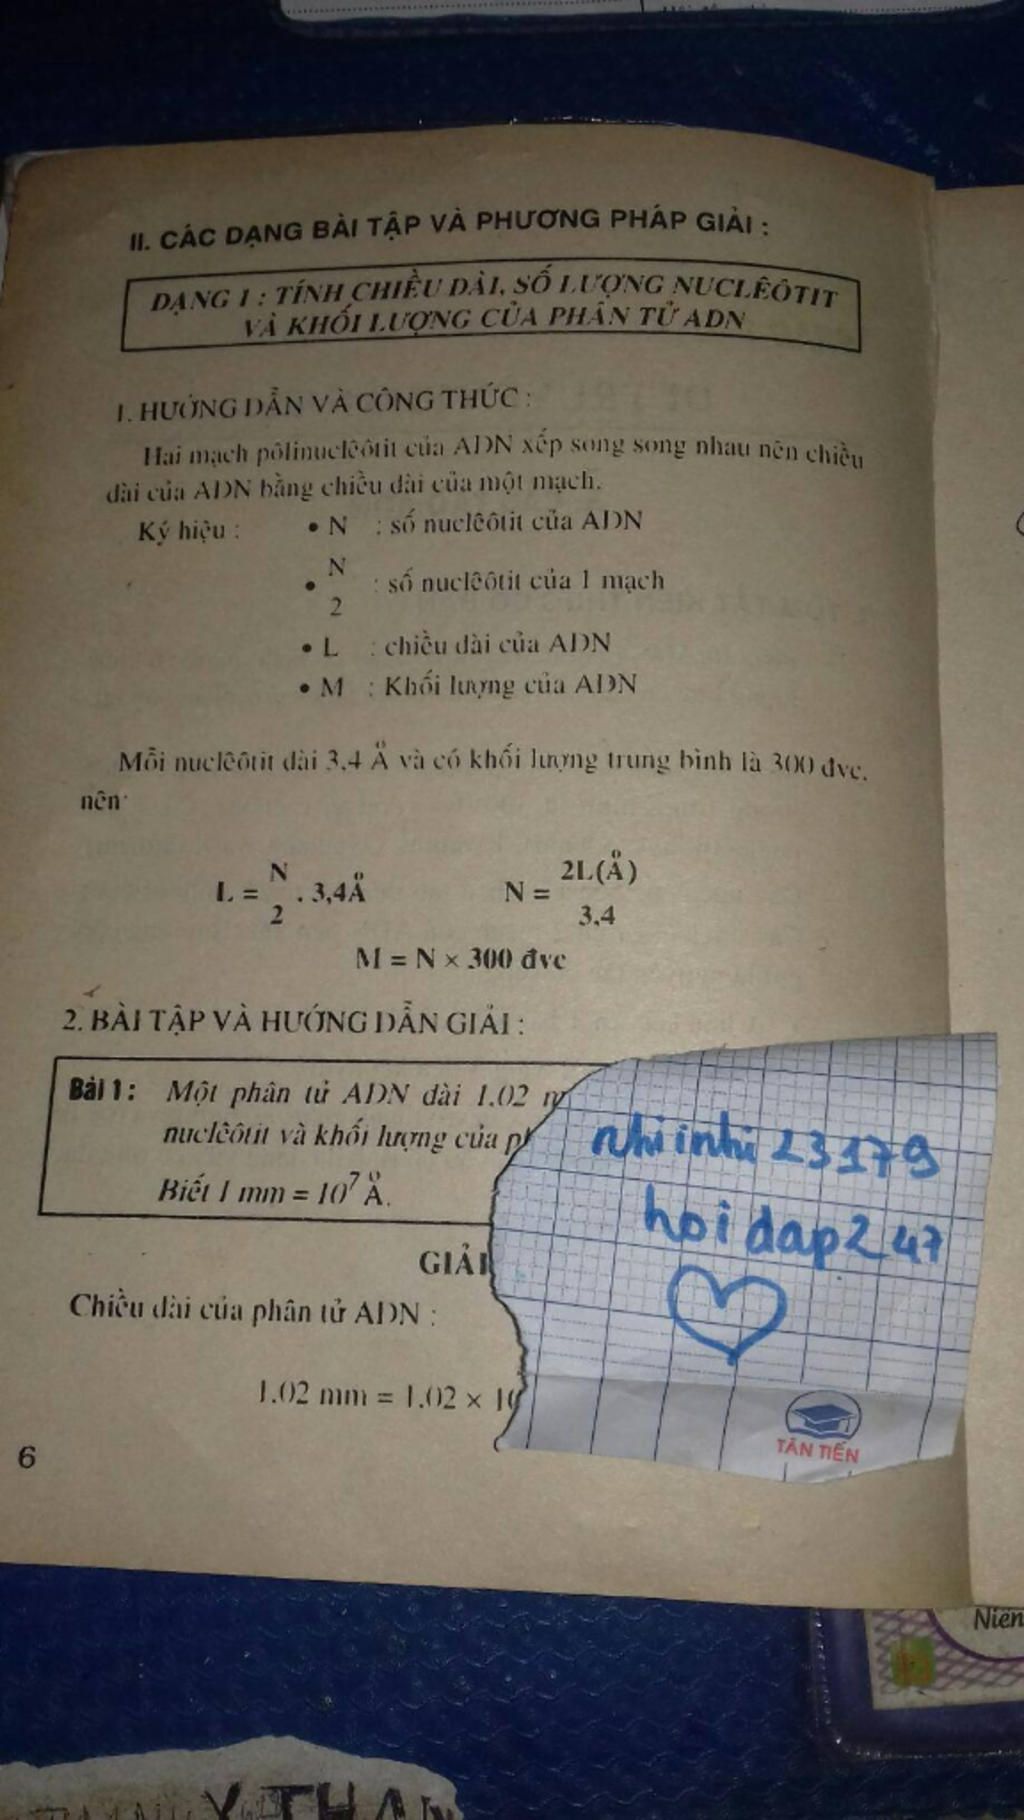 II. CÁC DẠNG BÀI TẬP VÀ PHƯƠNG PHÁP GIẢI :
DẠNG 1 : TÍNH CHIỀU DÀI, SỐ LƯỢNG NUCLÊÔTIT
VÀ KHỐI LƯỢNG CỦA PHÂN TỬ ADN
1. HƯỚNG DẪN VÀ CÔNG THỨC :
Hai mạch pôlinuclêôtit của ADN xếp song song nhau nên chiều
dài của ADN bằng chiều dài của một mạch.
Ký hiệu : • N : số nuclêôtit của ADN
• N/2 : số nuclêôtit của 1 mạch
• L : chiều dài của ADN
• M : Khối lượng của ADN
Mỗi nuclêôtit dài 3,4 Å và có khối lượng trung bình là 300 đvc,
nên
L = N/2 . 3,4Å N = 2L(Å)/3,4
M = N × 300 đvc
2. BÀI TẬP VÀ HƯỚNG DẪN GIẢI :
Bài 1 : Một phân tử ADN dài 1.02
nuclêôtit và khối lượng của
Biết 1 mm = 10⁷ Å.
GIẢI
Chiều dài của phân tử ADN :
1.02 mm = 1.02 ×
6
nhiinhi 23179
hoidap247
TÂN TIẾN
Niên